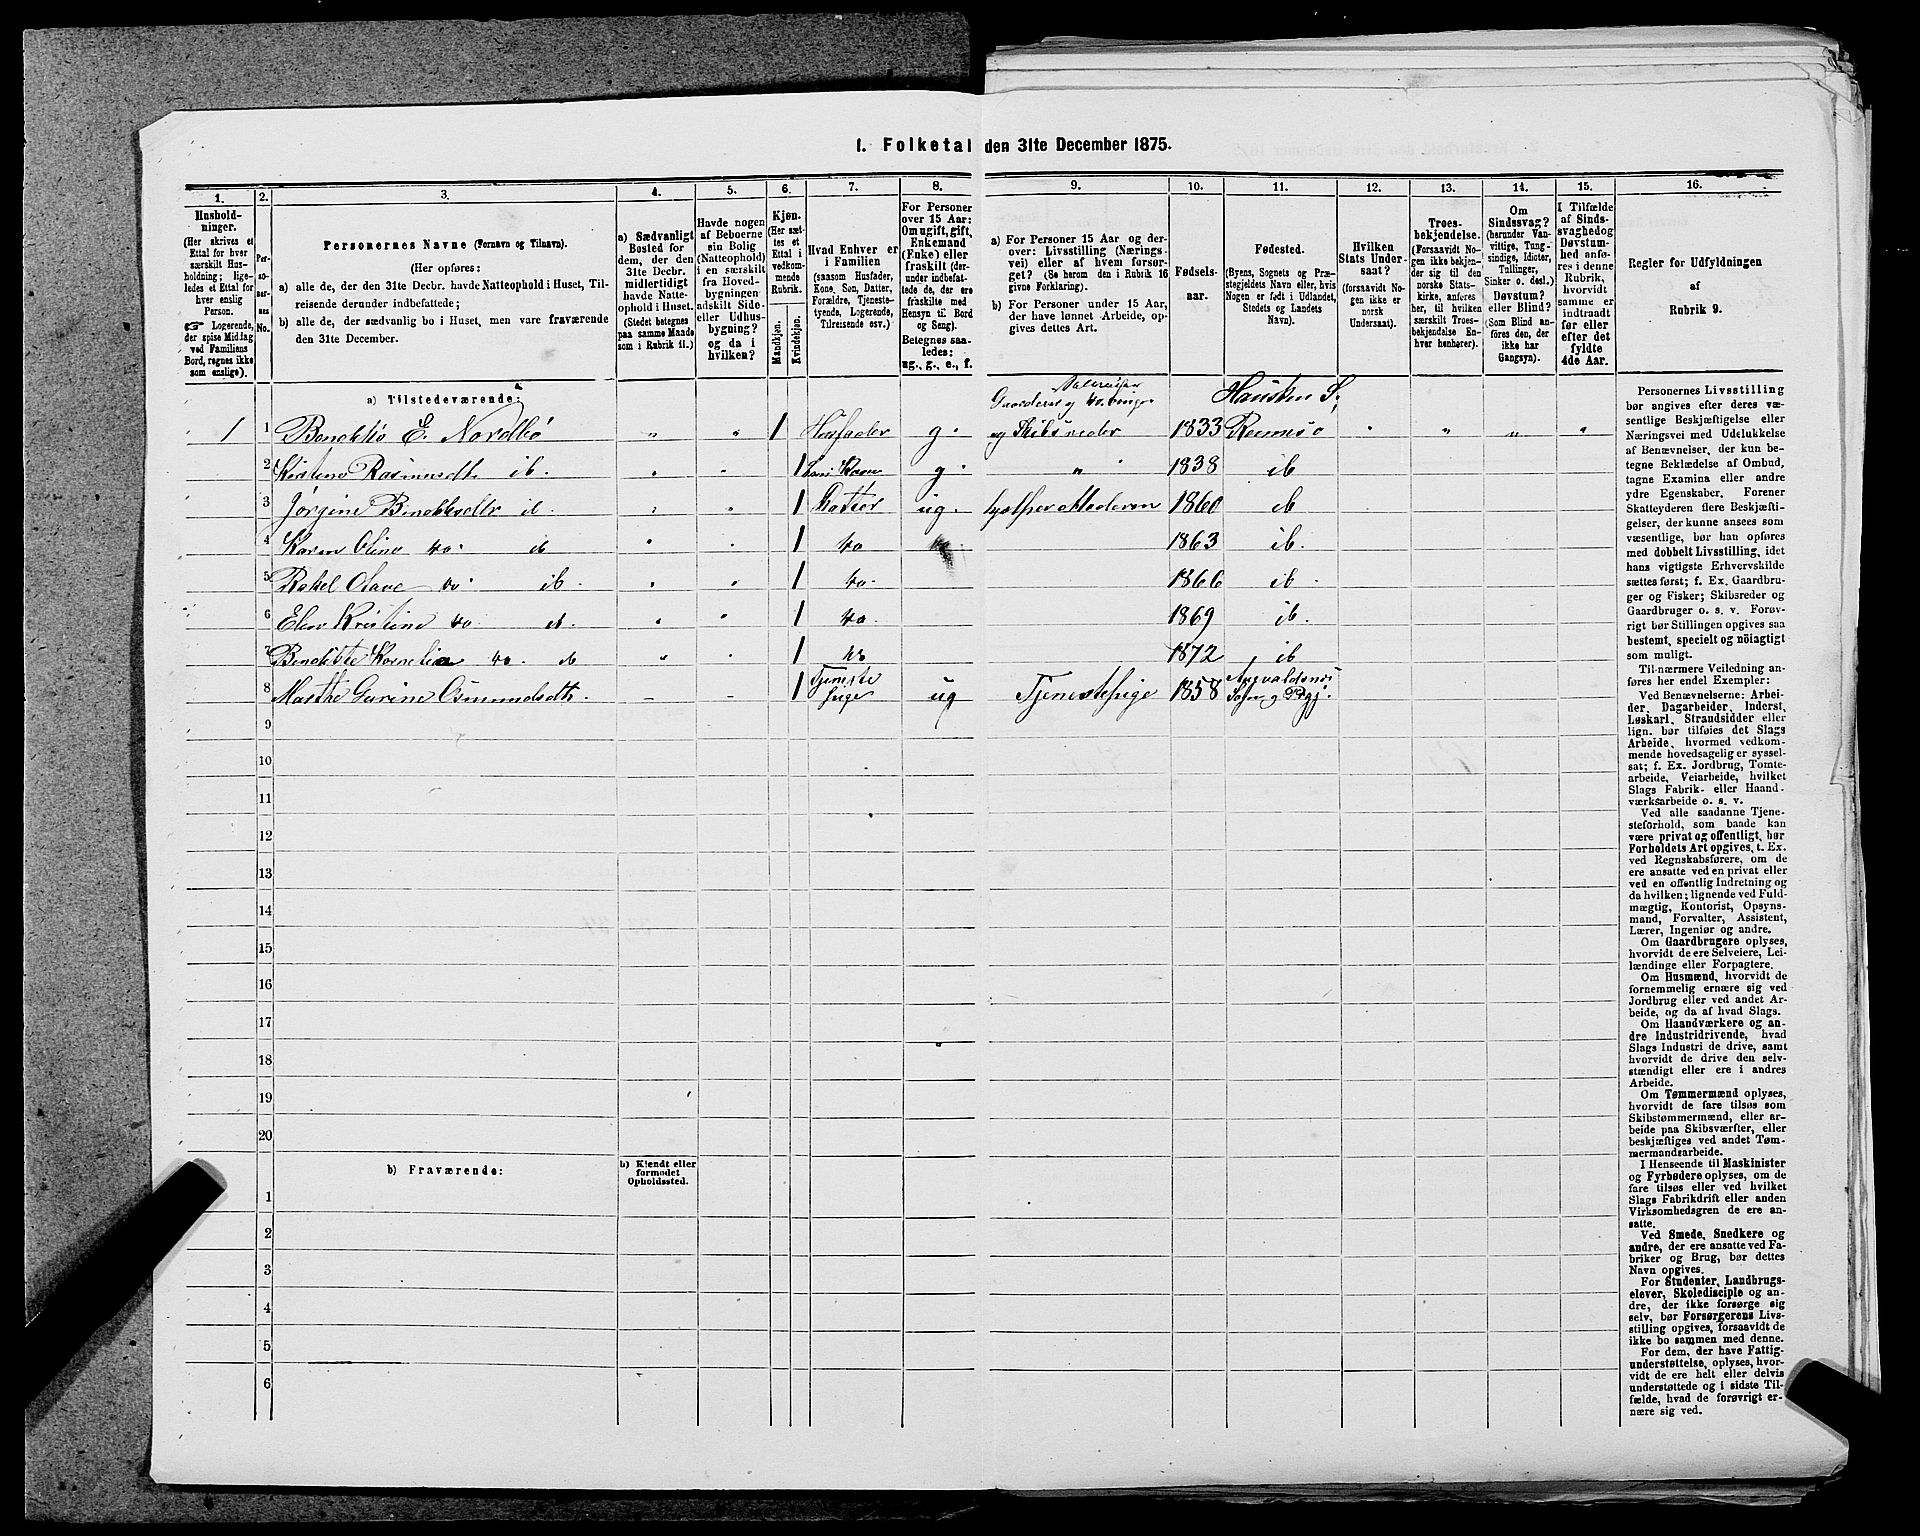 1. Folketal den 31te December 1875.
1.
2.
3.
4.
5.
6.
7.
8.
9.
10.
11.
12.
13.
14.
15.
16.
Hushold-
ninger.
(Her skrives et
Ettal for hver
særskilt Hus-
holdning; lige-
ledes et Ettal for
hver enslig
Person.
☞ Logerende,
der spise Middag
ved Familiens
Bord, regnes ikke
som enslige).
Per-
so-
ner-
nes
No.
Personernes Navne (Fornavn og Tilnavn).
(Her opføres:
a) alle de, der den 31te Decbr. havde Natteophold i Huset, Til-
reisende derunder indbefattede;
b) alle de, der sædvanlig bo i Huset, men vare fraværende
den 31te December.
a) Sædvanligt
Bosted for
dem, der den
31te Decbr.
midlertidigt
havde Natte-
ophold i Huset.
(Stedet betegnes
paa samme Maade
som i Rubrik 11.)
Havde nogen
af Beboerne
sin Bolig
(Natteophold)
i en særskilt
fra Hoved-
bygningen
adskilt Side-
eller Udhus-
bygning?
og da i
hvilken?
Kjøn.
(Her sæt-
tes et
Ettal i
vedkom-
mende
Rubrik.
Mandkjøn.
Kvindekjøn.
Hvad Enhver er
i Familien
(saasom Husfader,
Kone, Søn, Datter,
Forældre, Tjeneste-
tyende, Logerende,
Tilreisende osv.)
For Personer
over 15 Aar:
Om ugift, gift,
Enkemand
(Enke) eller
fraskilt (der-
under indbefat-
tede de, der ere
fraskilte med
Hensyn til Bord
og Seng).
Betegnes saa-
ledes:
ug., g., e., f.
a) For Personer 15 Aar og der-
over: Livsstilling (Nærings-
vei) eller af hvem forsør-
get? (Se herom den i Rubrik 16
givne Forklaring).
b) For Personer under 15 Aar,
der have lønnet Arbeide, op-
gives dettes Art.
Fødsels-
aar.
Fødested.
(Byens, Sognets og Præ-
stegjeldets Navn eller, hvis
Nogen er født i Udlandet,
Stedets og Landets
Navn).
Hvilken
Stats Under-
saat?
(forsaavidt No-
gen ikke er
norsk
Undersaat).
Troes-
bekjendelse.
(Forsaavidt No-
gen ikke bekjen-
der sig til den
norske Stats-
kirke, anføres
her, til hvilken
særskilt Troes-
bekjendelse En-
hver henhører).
Om
Sindssvag?
(herunder Van-
vittige, Tung-
sindige, Idioter,
Tullinger,
Sinker o. desl.)
Døvstum?
eller Blind?
(Som Blind an-
føres den, der
ikke har
Gangsyn).
I Tilfælde
af Sinds-
svaghed og
Døvstum-
hed anfø-
res i denne
Rubrik,
hvorvidt
samme er
indtraadt
før eller
efter det
fyldte
4de Aar.
Regler for Udfyldningen
af
Rubrik 9.
a) Tilstedeværende:
1 1 Nordbø 1 Husfader g. og Skibsreder 1833 Rennesø
2 ib. 1 g. 1838 ib
3 ib. 1 Datter ug. 1860 ib
4 Karen Oline do. ib 1 do 1863 ib.
5 Rakel do. ib. 1 do. 1866 ib.
6 Kristine do. ib. 1 do. 1869 ib.
7 do. ib 1 do 1872 ib
8 Marthe Gurine Osmundsdtr. 1 Tjeneste pige ug Tjenestepige 1858
9
10
11
12
13
14
15
16
17
18
19
20
b) Fraværende:
b) Kjendt eller
formodet
Opholdssted.
1
2
3
4
5
6
Personernes Livsstilling
bør angives efter deres væ-
sentlige Beskjæftigelse eller
Næringsvei med Udelukkelse
af Benævnelser, der kun be-
tegne Beklædelse af Ombud,
tagne Examina eller andre
ydre Egenskaber. Forener
Skatteyderen flere Beskjæfti-
gelser, der kunne ansees som
væsentlige, bør han opføres
med dobbelt Livsstilling, idet
hans vigtigste Erhvervskilde
sættes først; f. Ex. Gaardbru-
ger og Fisker; Skibsreder og
Gaardbruger o. s. v. Forøv-
rigt bør Stillingen opgives saa
bestemt, specielt og nöiagtigt
som muligt.
Til nærmere Veiledning an-
føres her endel Exempler:
Ved Benævnelserne: Arbei-
der, Dagarbeider, Inderst,
Løskarl, Strandsidder eller
lign. bør tilføies det Slags
Arbeide, hvormed vedkom-
mende hovedsagelig er syssel-
sat; f. Ex. Jordbrug, Tomte-
arbeide, Veiarbeide, hvilket
Slags Fabrik- eller Haand-
værksarbeide o. s. v.
Ved alle saadanne Tjene-
steforhold, som baade kan
være privat og offentligt, bør
Forholdets Art opgives, t. Ex.
ved Regnskabsførere, om de
ere ansatte ved en privat eller
ved en offentlig Indretning og
da hvilken; lignende ved Fuld-
mægtig, Kontorist, Opsyns-
mand, Forvalter, Assistent,
Lærer, Ingeniør og andre.
Om Gaardbrugere oplyses,
hvorvidt de ere Selveiere, Lei-
lændinge eller Forpagtere.
Om Husmænd, hvorvidt de
fornemmelig ernære sig ved
Jordbrug eller ved andet Ar-
beide, og da af hvad Slags.
Om Haandværkere og an-
dre Industridrivende, hvad
Slags Industri de drive, samt
hvorvidt de drive den selv-
stændigt eller ere i andres
Arbeide.
Om Tømmermænd oplyses,
hvorvidt de fare tilsøs som
Skibstømmermænd, eller ar-
beide paa Skibsværfter, eller
beskjæftiges ved andet Tøm-
mermandsarbeide.
I Henseende til Maskinister
og Fyrbødere oplyses, om de
fare tilsøs eller ved hvilket
Slags Fabrikdrift eller anden
Virksomhedsgren de ere an-
satte.
Ved Smede, Snedkere og
andre, der ere ansatte ved Fa-
briker og Brug, bør dettes
Navn opgives.
For Studenter, Landbrugs-
elever, Skoledisciple og an-
dre, der ikke forsørge sig
selv, bør Forsørgerens Livs-
stilling opgives, forsaavidt de
ikke bo sammen med denne.
For dem, der have Fattig-
understøttelse, oplyses, hvor-
vidt de ere helt eller delvis
understøttede og i sidste Til-
fælde, hvad de forøvrigt er-
nære sig ved.